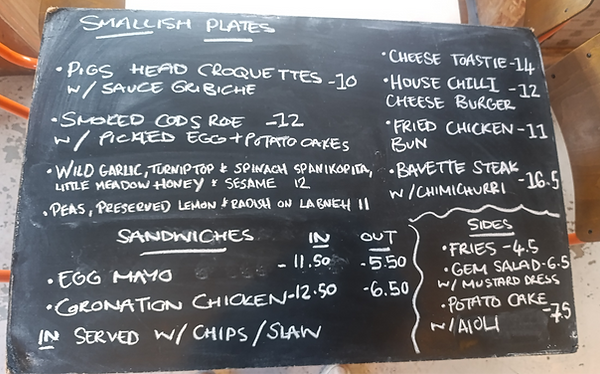 SMALLISH PLATES
• PIGS HEAD CROQUETTES -10
W/ SAUCE GRIBICHE
• SMOKED CODS ROE -12
W/ PICKLED EGG + POTATO CAKES
• WILD GARLIC, TURNIP TOP & SPINACH SPANIKOPITA,
LITTLE MEADOW HONEY & SESAME 12
• PEAS, PRESERVED LEMON & RADISH ON LABNEH 11
• CHEESE TOASTIE -14
• HOUSE CHILLI -12
CHEESE BURGER
• FRIED CHICKEN -11
BUN
• BAVETTE STEAK -16.5
W/ CHIMICHURRI
SANDWICHES IN OUT
• EGG MAYO - 11.50 -5.50
• CORONATION CHICKEN -12.50 -6.50
IN SERVED W/ CHIPS / SLAW
SIDES
• FRIES -4.5
• GEM SALAD -6.5
W/ MUSTARD DRESS
• POTATO CAKE -7.5
W/ AIOLI